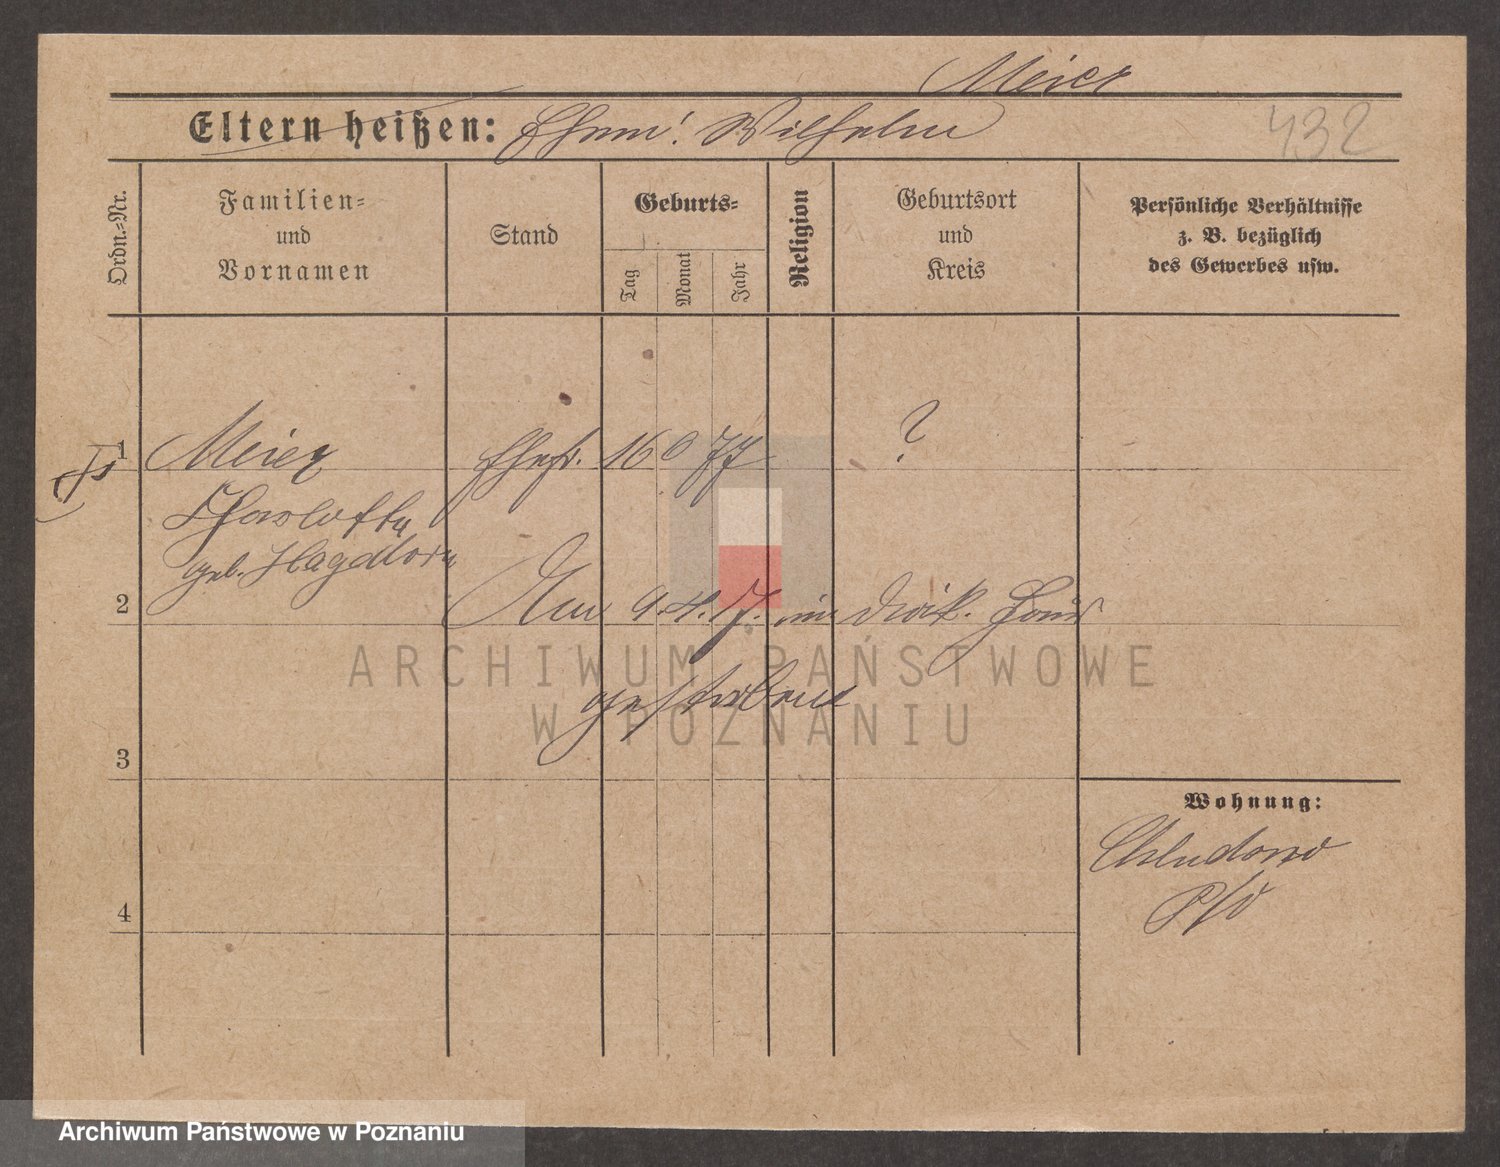 Meier
Eltern heißen: Ehem! Wilhelm
432
Ordn.-Nr.
Familien-
und
Vornamen
Stand
Geburts-
Tag
Monat
Jahr
Religion
Geburtsort
und
Kreis
Persönliche Verhältnisse
z. B. bezüglich
des Gewerbes usw.
1 Meier Ehefr. 16 77 ?
Charlotte
geb. Hagedorn
2 Am 9.4.17. im Diak. Haus
gestorben
3
4
Wohnung:
Chludowo
P/O
ARCHIWUM PAŃSTWOWE
W POZNANIU
Archiwum Państwowe w Poznaniu